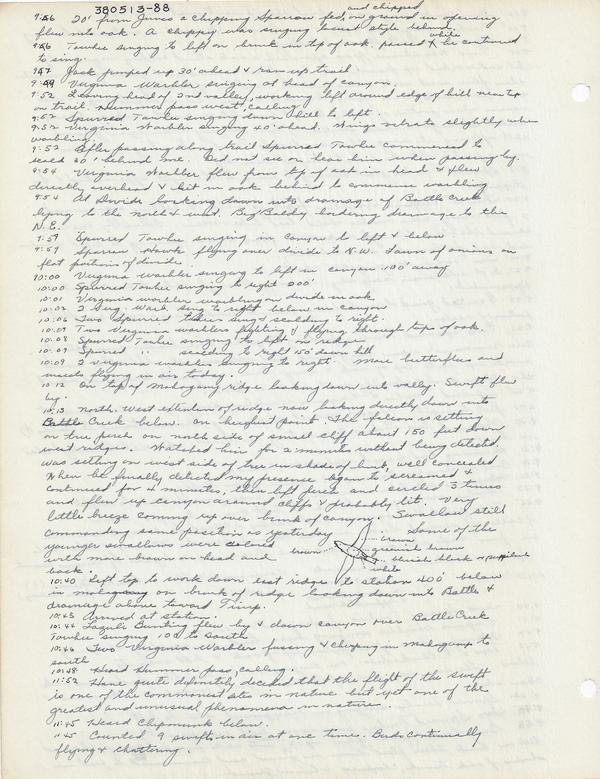 380513-88
9:46 20' from Junco a Chipping Sparrow fed, and chipped on ground in opening
flew into oak. A chippy was singing locust style behind.
9:46 Towhee singing to left on brink in top of oak. passed & he continued
to sing. while
9:47 Jack jumped up 30' ahead & ran up trail
9:49 Virginia Warbler singing at head of canyon.
9:52 Leaving head of 2nd valley, working left around edge of hill near top
on trail. Hummer pass west, calling
9:52 Spurred Towhee singing down hill to left.
9:52 Virginia Warbler singing 40' ahead. Wings vibrate slightly when
warbling.
9:52 After passing along trail Spurred Towhee commenced to
scold 50' behind me. Did not see or hear him when passing by.
9:54 Virginia Warbler flew from top of oak in head & flew
directly overhead & lit in oak behind to commence warbling
9:54 At Divide looking down into drainage of Battle Creek
lying to the north & west. Big Baldy bordering drainage to the
N.E.
9:57 Spurred Towhee singing in canyon to left & below
9:59 Sparrow Hawk flying over divide to N.W. Lawn of onions on
flat portions of divide.
10:00 Virginia warbler singing to left in canyon 100' away
10:00 Spurred Towhee singing to right 200'
10:01 Virginia warbler warbling on divide in oak
10:02 2 Virg. Warb. sing to right below in canyon
10:06 Two Spurred Towhees sing & scolding to right.
10:07 Two Virginia warblers fighting & flying through tops of oak.
10:08 Spurred Towhee singing to left on ridge
10:09 Spurred " scolding to right 150' down hill
10:09 2 Virginia warbler singing to right. More butterflies and
insects flying in air today.
10:12 On top of Mahogany ridge looking down into valley. Swift flew
by.
10:13 North. West extention of ridge now looking directly down into
Battle Creek below. On highest point. The falcon is setting
on tree perch on north side of small cliff about 150 feet down
west ridges. Watched him for 2 minutes without being detected.
Was setting on west side of tree in shade of limb, well concealed
When he finally detected my presence began to scream &
continued for 4 minutes, then left perch and circled 3 times
and flew up canyon around cliffs & probably lit. Very
little breeze coming up over brink of canyon. Swallow still
commanding same position as yesterday
Some of the
younger swallows were colored
with more brown on head and
back.
brown
crown
greenish brown
bluish black & purplish
white
10:40 Left top to work down east ridges to station 400' below
in mahogany on brink of ridge looking down into Battle &
drainage above toward Timp.
10:43 Arrived at station.
10:44 Lazuli Bunting flew by & down canyon over Battle Creek
Towhee singing 100' to south
10:46 Two Virginia Warbler fussing & chirping in Mahogany to
south
10:48 Heard Hummer pass, calling.
11:52 Have quite definitely decided that the flight of the swift
is one of the commonest sites in nature but yet one of the
greatest and unusual phenomena in nature.
11:45 Heard Chipmunk below.
11:45 Counted 9 swifts in air at one time. Birds continually
flying & chattering.